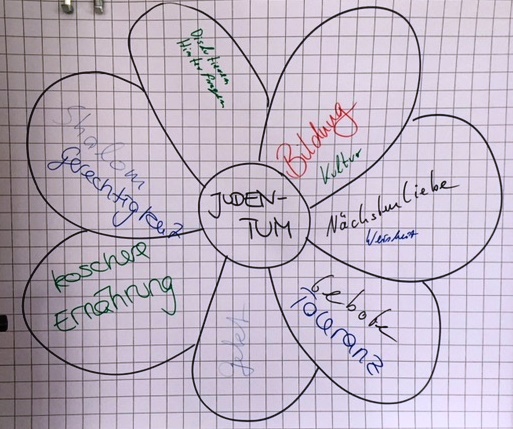 JUDEN-
TUM
Diskutieren
Hinterfragen
Bildung
Kultur
Nächstenliebe
Weisheit
Gebote
Toleranz
Gebet
koschere
Ernährung
Shalom
Gerechtigkeit